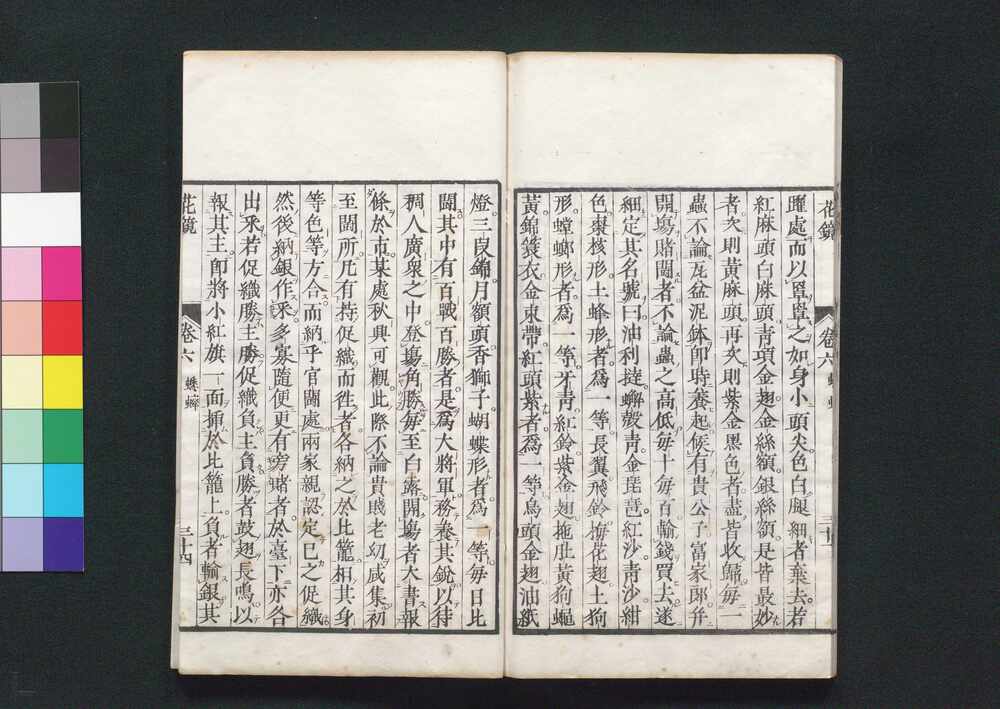 花鏡
卷六
躍處而以罩罩之如身小頭尖色白腿細者棄去若
紅麻頭白麻頭青項金翅金絲額銀絲額是皆最妙
者次則黃麻頭再次則紫金黑色者盡皆收歸每一
蟲不論瓦盆泥鉢即時養起候有貴公子富家郎并
開場賭鬪者不論蟲之高低每十每百輸錢買去遂
細定其名號曰油利撻蟹殼青金琵琶紅沙青沙紺
色棗核形土蜂形者爲一等長翼飛鈴梅花翅土狗
形螳螂形者爲一等牙青紅鈴紫金翅拖肚黃狗蠅
黃錦簑衣金束帶紅頭紫者爲一等烏頭金翅油紙
燈三段錦月額頭香獅子蝴蝶形者爲一等每日比
鬪其中有百戰百勝者是爲大將軍務養其銳以待
稠人廣衆之中登塲角勝每至白露開塲者大書報
條於市某處秋興可觀此際不論貴賤老幼咸集初
至鬪所凡有持促織而徃者各納之於比籠相其身
等色等方合而納乎官鬪處兩家親認定己之促織
然後納銀作釆多寡隨便更有旁賭者於臺下亦各
出釆若促織勝主勝促織負主負勝者鼓翅長鳴以
報其主即將小紅旗一面揷於比籠上負者輸銀其
花鏡
卷六 蟋蟀
三十四